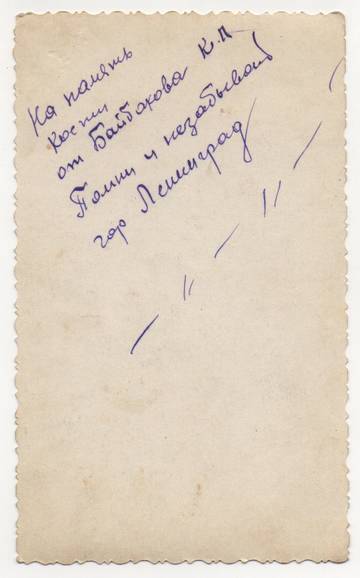 На память
Кости
от Байбакова К.П
Помни и незабывай
гор Ленинград
— " — " — " —